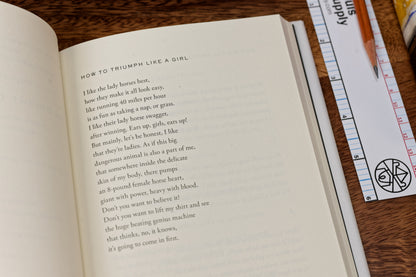 HOW TO TRIUMPH LIKE A GIRL
I like the lady horses best,
how they make it all look easy,
like running 40 miles per hour
is as fun as taking a nap, or grass.
I like their lady horse swagger,
after winning. Ears up, girls, ears up!
But mainly, let's be honest, I like
that they're ladies. As if this big
dangerous animal is also a part of me,
that somewhere inside the delicate
skin of my body, there pumps
an 8-pound female horse heart,
giant with power, heavy with blood.
Don't you want to believe it?
Don't you want to lift my shirt and see
the huge beating genius machine
that thinks, no, it knows,
it's going to come in first.
Supply
6